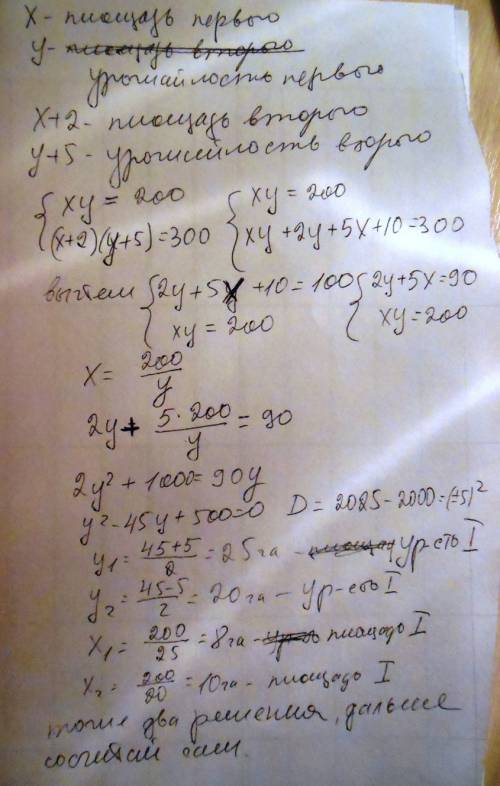 x - площадь первого
y - площадь второго
урошайлость первого
x+2 - площадь второго
y+5 - урошайлость второго
{ xy = 200 { xy = 200
(x+2)(y+5)=300 xy+2y+5x+10=300
вычтем { 2y+5x+10=100 { 2y+5x=90
xy=200 xy=200
x = 200/y
2y + 5·200/y = 90
2y²+1000=90y
y²-45y+500=0 D = 2025-2000=(±5)²
y₁ = 45+5/2 = 25га - площад ур-сть I
y₂ = 45-5/2 = 20га - ур-сть I
x₁ = 200/25 = 8га - ур-ть площадь I
x₂ = 200/20 = 10га - площадь I
тоже два решения, дальше
сосчитай сам.